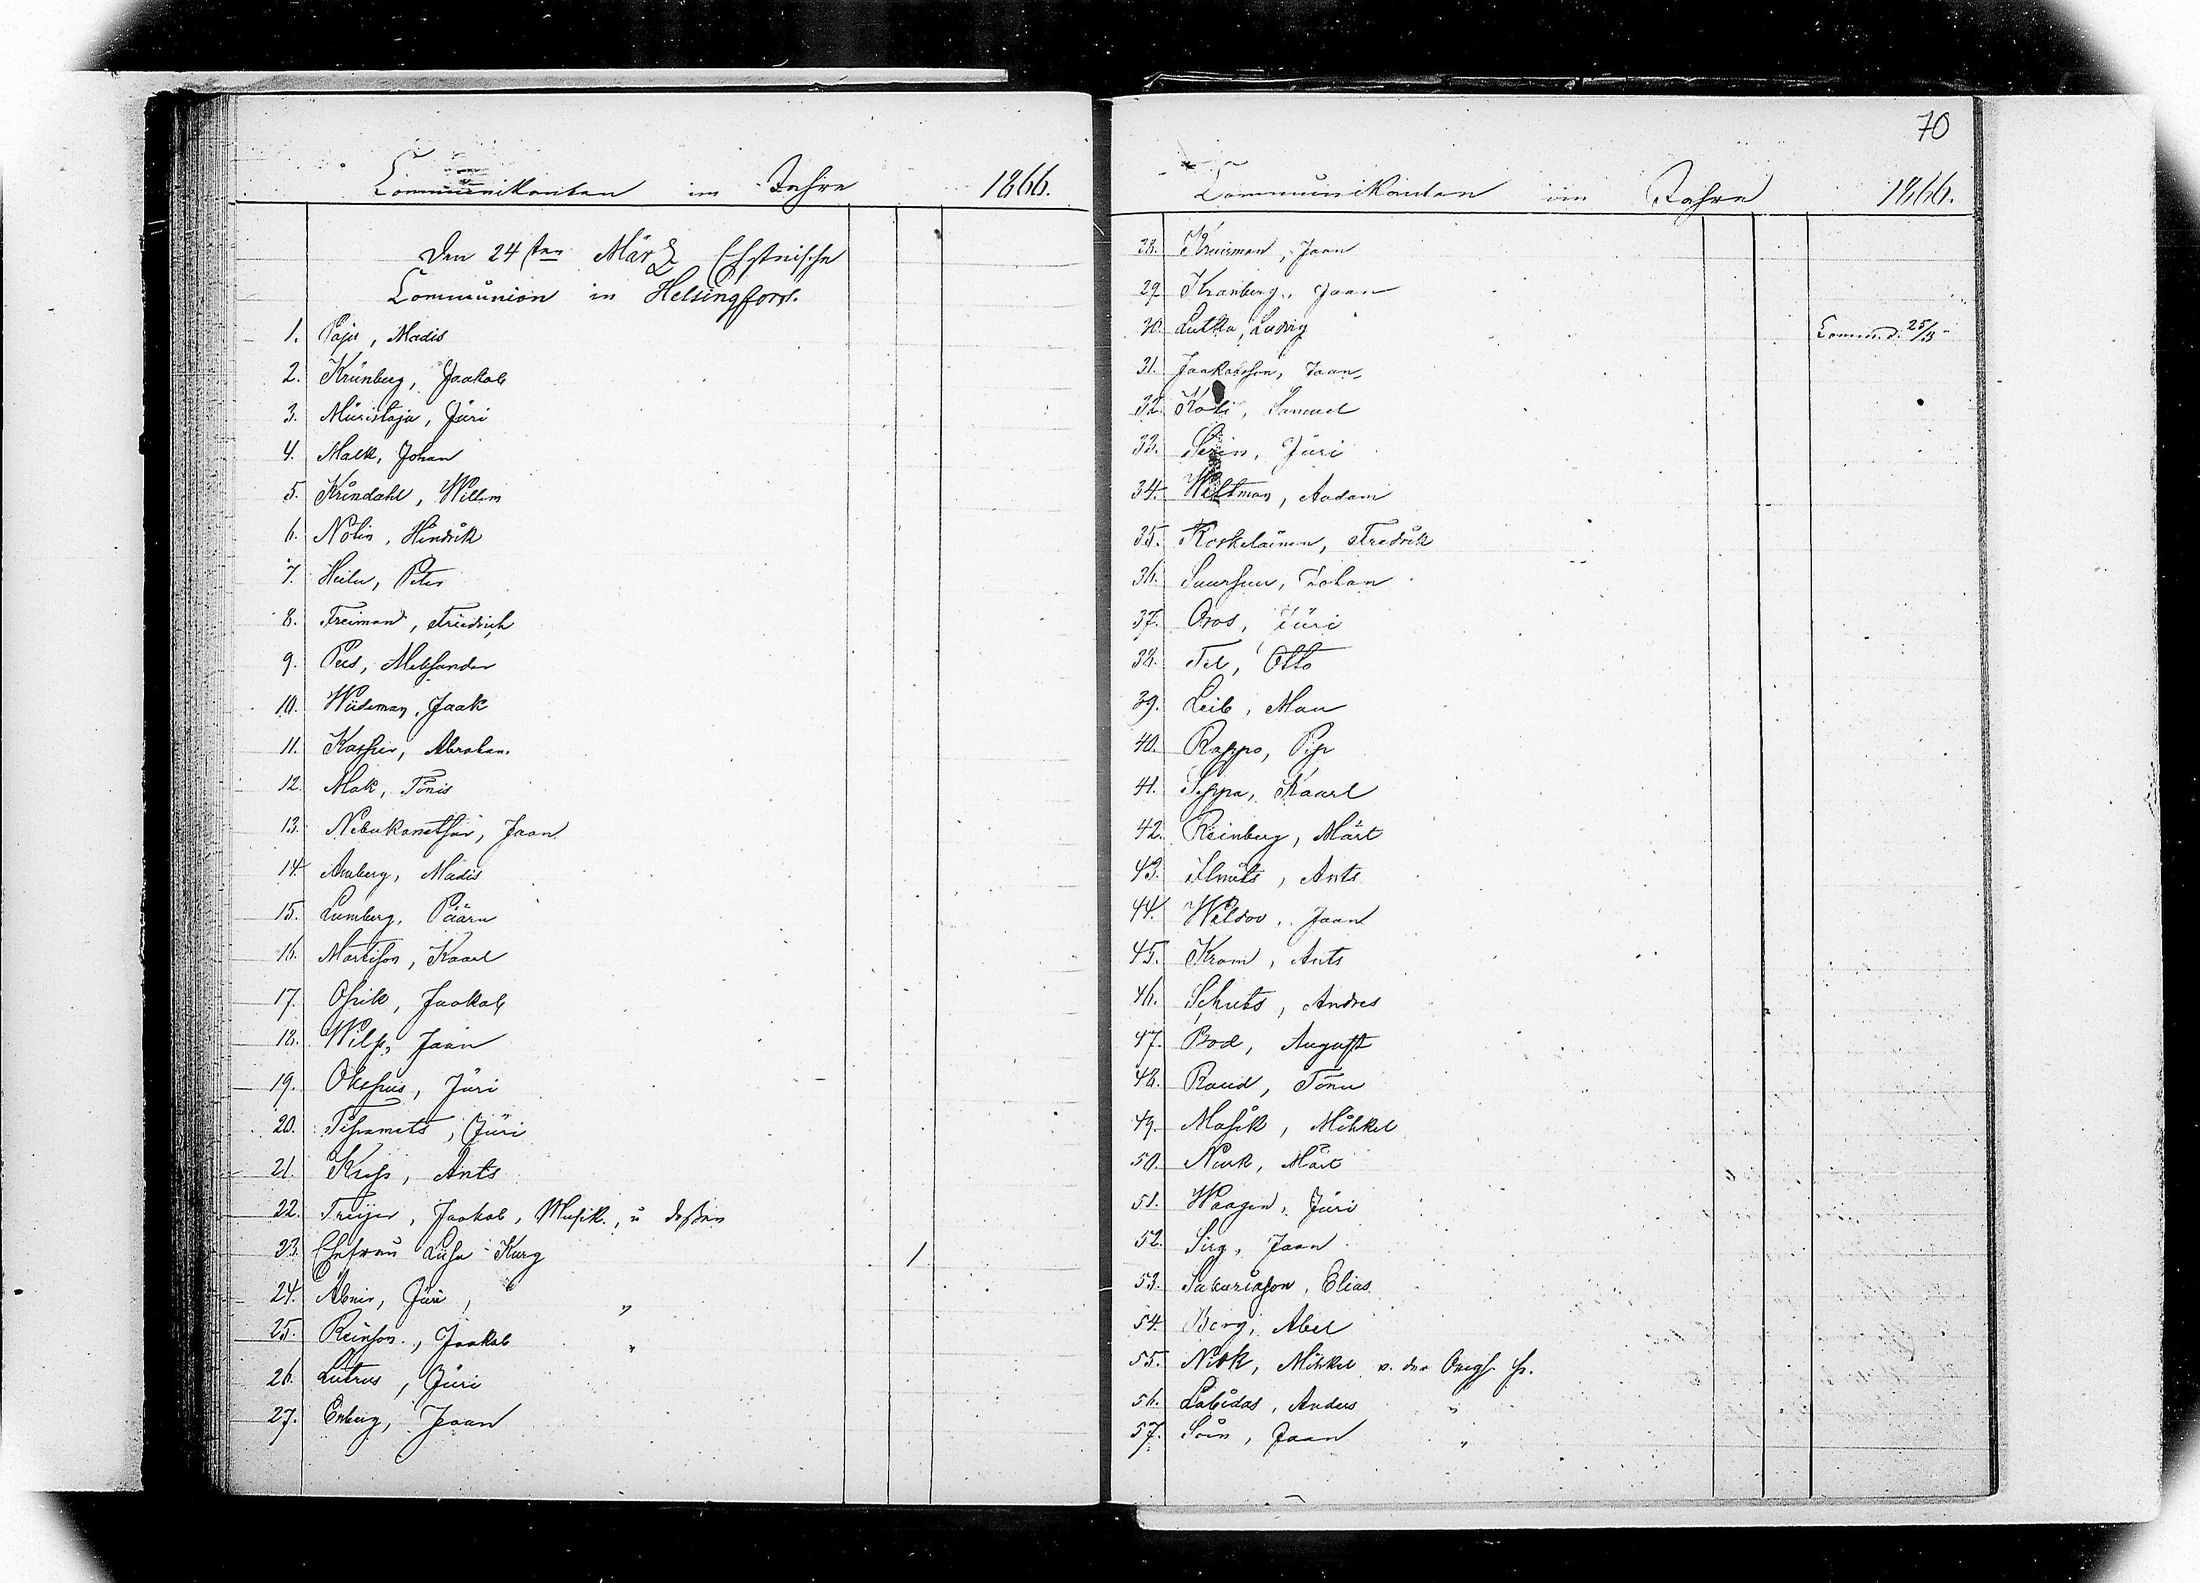 Communikanten im Jahre 1866.
Den 24sten März Ehstnische
Communion in Helsingfors.
1. Paju, Madis
2. Krünberg, Jaakob
3. Müristaja, Jüri
4. Malk, Johan
5. Kröndahl, Willem
6. Nölin, Hindrik
7. Heiln, Peter
8. Freiman, Friedrich
9. Pus, Aleksander
10. Wüdeman, Jaak
11. Kasper, Abraham
12. Mak, Tönis
13. Nebukanetsar, Jaan
14. Amberg, Madis
15. Lumberg, Päärn
16. Martison, Kaarl
17. Jaakob
18. Wilp, Jaan
19. Jüri
20. Jüri
21. Kriss, Ants
22. Treijer, Jaakob, Musik., u deßen
23. Ehefrau Liisa Kurg 1
24. Abner, Jüri, "
25. Reinson, Jaakob "
26. Lutrus, Jüri
27. Enberg, Jaan
70
Communikanten im Jahre 1866.
28. Kruusman, Jaan
29. Kranberg, Jaan
30. Lutka, Ludvig Commun. d. 25/3
31. Jaakobson, Jaan
32. Koli, Samuel
33. Jüri
34. Weltman, Aadam
35. Koskelainen, Fredrik
36. Suursuu, Johan
37. Oras, Jüri
38. Tel, Otto
39. Leib, Man
40. Rappo, Pip
41. Seppa, Kaarl
42. Reinberg, Märt
43. Ants
44. Weldov, Jaan
45. Krom, Ants
46. Schuts, Andres
47. Bod, August
48. Raud, Tönu
49. Masik, Mihkel
50. Nurk, Märt
51. Waagen, Jüri
52. Sirg, Jaan
53. Sakariason, Elias
54. Berg, Abel
55. Nirk, Mihkel v. der
56. Labidas, Anders "
57. Söin, Jaan "